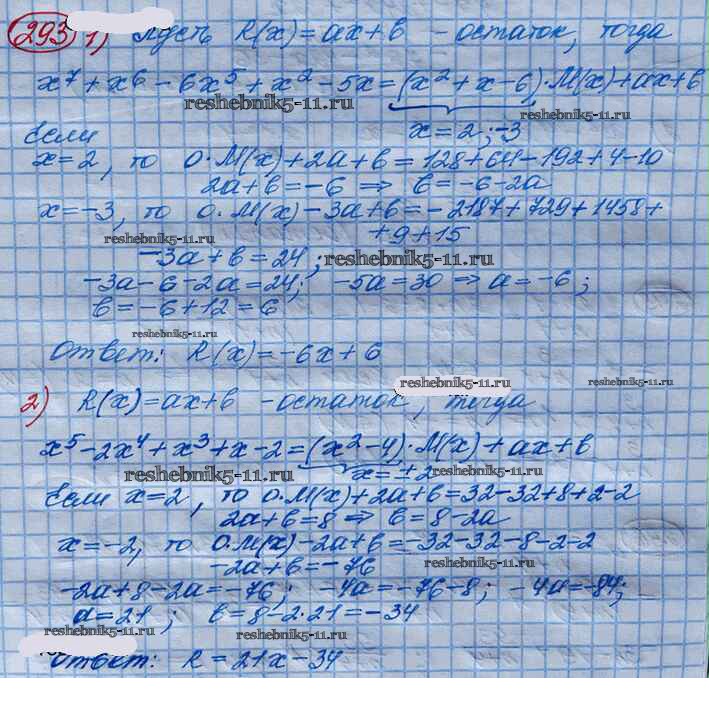 293 1) Пусть R(x)=ax+b - остаток, тогда
x⁷+x⁶-6x⁵+x²-5x=(x²+x-6)·M(x)+ax+b
reshebnik5-11.ru
Если x=2;-3
x=2, то 0·M(x)+2a+b=128+64-192+4-10
2a+b=-6 ⇒ b=-6-2a
x=-3, то 0·M(x)-3a+b=-2187+729+1458+
+9+15
reshebnik5-11.ru
-3a+b=24; reshebnik5-11.ru
-3a-6-2a=24; -5a=30 ⇒ a=-6;
b=-6+12=6
reshebnik5-11.ru
Ответ: R(x)=-6x+6
reshebnik5-11.ru reshebnik5-11.ru
2) R(x)=ax+b - остаток, тогда
x⁵-2x⁴+x³+x-2=(x²-4)·M(x)+ax+b
reshebnik5-11.ru x=±2 reshebnik5-11.ru
Если x=2, то 0·M(x)+2a+b=32-32+8+2-2
2a+b=8 ⇒ b=8-2a
x=-2, то 0·M(x)-2a+b=-32-32-8-2-2
-2a+b=-76 reshebnik5-11.ru
-2a+8-2a=-76; -4a=-76-8; -4a=-84;
a=21; b=8-2·21=-34
reshebnik5-11.ru reshebnik5-11.ru
Ответ: R=21x-34